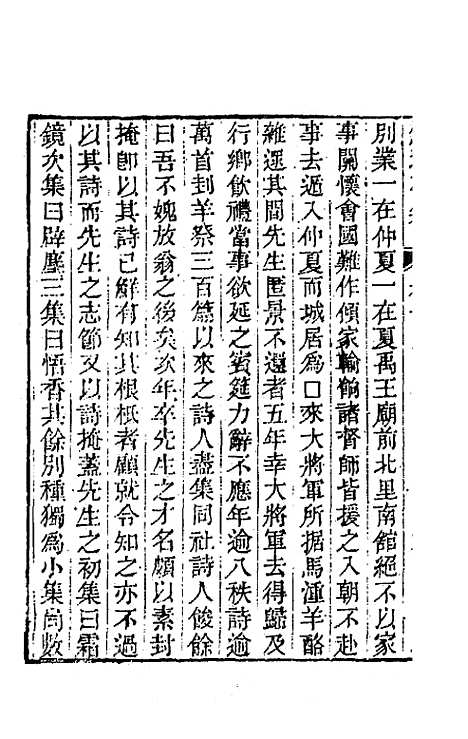 別業一在仲夏一在夏禹王廟前北里南館絕不以家
事關懷會國難作傾家輸餉諸督師皆援之入朝不赴
事去遁入仲夏而城居爲口來大將軍所据馬湩羊酪
雜遝其間先生匿景不還者五年幸大將軍去得歸及
行鄉飲禮當事欲延之賓筵力辭不應年逾八秩詩逾
萬首封羊祭三百篇以來之詩人盡集同社詩人餕餘
曰吾不媿放翁之後矣次年卒先生之才名頗以素封
掩卽以其詩已鮮有知其根柢者顧就令知之亦不過
以其詩而先生之志節又以詩掩蓋先生之初集曰霜
鏡次集曰辟塵三集曰悟香其餘別種獨爲小集尙數